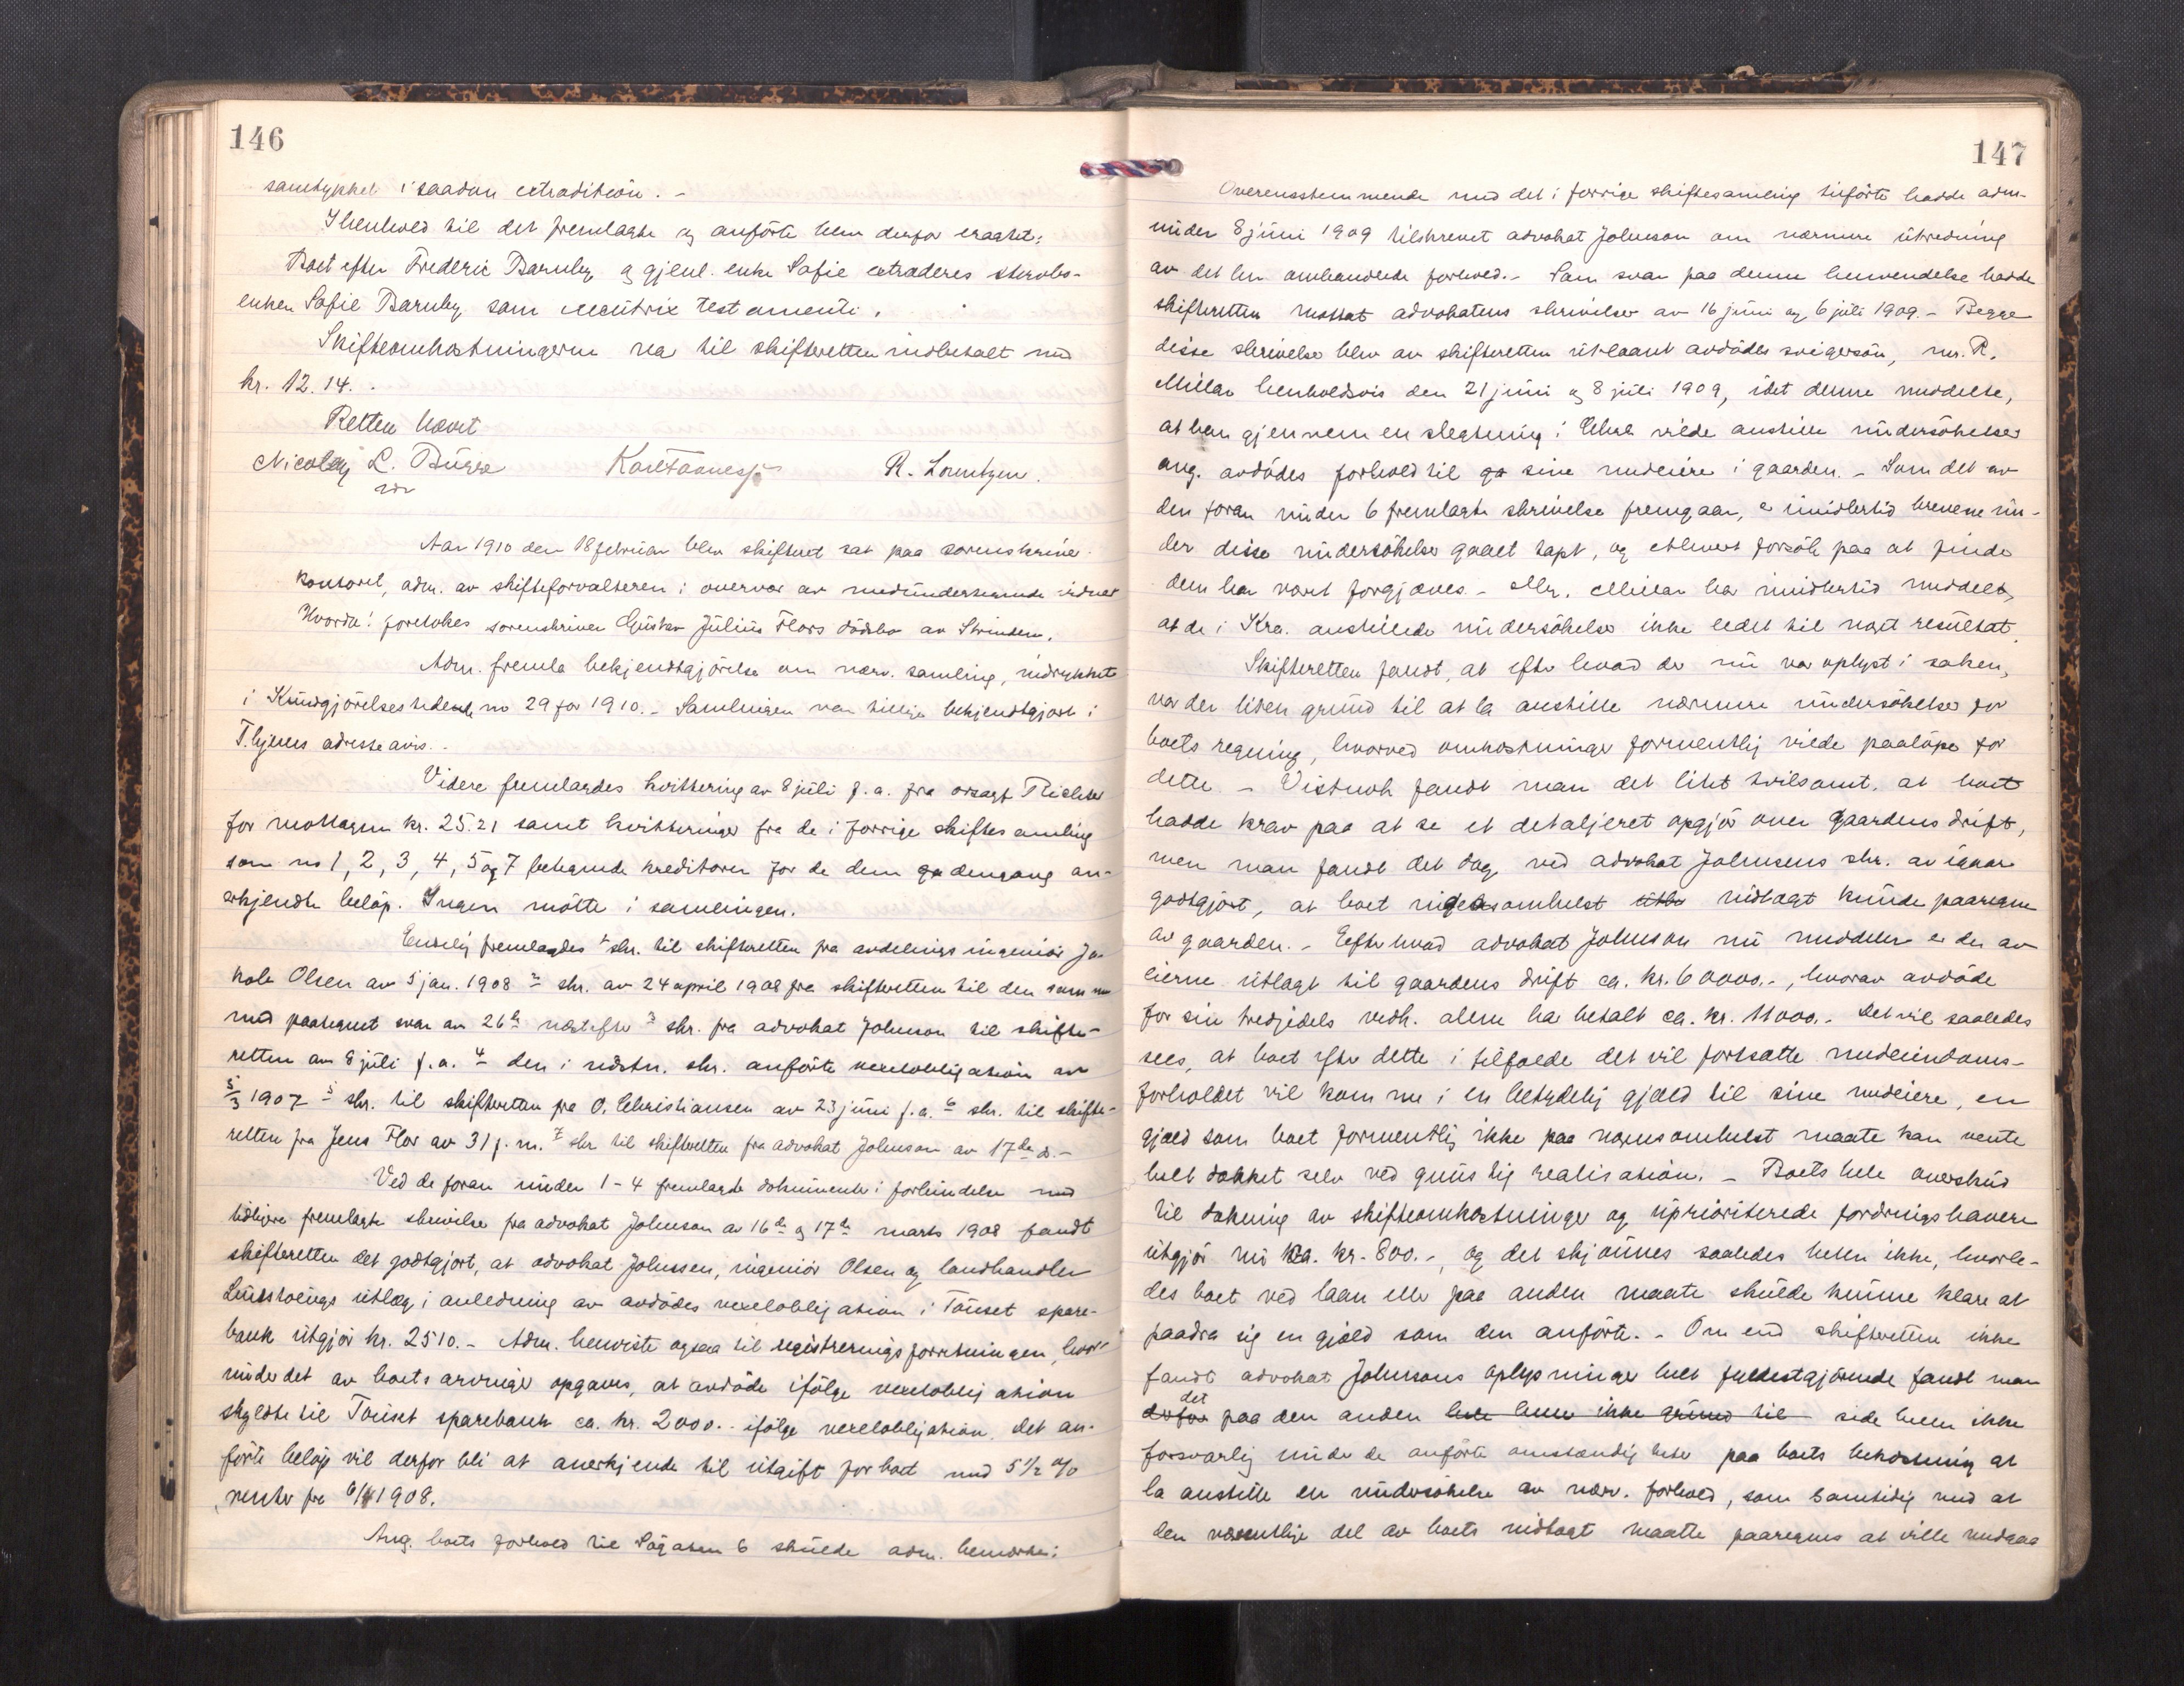 146
samtykket i saadan extradition. -
I henhold til det fremlagte og anførte blev derfor eragtet:
Boet efter Frederic Barnley og gjenl. enke Sofie extraderes sterbo-
enken Sofie Barnley som executrix testamenti.
Skifteomkostningerne var til skifteretten indbetalt med
kr. 12.14.
Retten hævet
Nicolay L. Bugge Karl Fannesjø R. Lorentzen.
Aar 1910 den 18 februar blev skifteret sat paa sorenskriver-
kontoret, adm. av skifteforvalteren i overvær av medundertegnede vidner
Hvorda! foretokes sorenskriver Gustav Julius Flors dødsbo av Strinden.
Adm. fremla bekjendtgjørelse om nærv. samling, indrykket
i Kundgjørelsestidende no 29 for 1910. - Samlingen var tillige bekjendtgjort i
T.hjems adresseavis. -
Videre fremlagdes kvittering av 8 juli f.a. fra orsagf. Richter
for mottagne kr. 25.21 samt kvitteringer fra de i forrige skiftesamling
som no 1, 2, 3, 4, 5 og 7 betegnede kreditorer for de dem dengang an-
erkjendte beløp. Ingen møtte i samlingen.
Endelig fremlagdes 1 skr. til skifteretten fra avdelingsingeniør Ja-
kob Olsen av 5 jan. 1908 2 skr. av 24 april 1908 fra skifteretten til den samme
med paategnet svar av 26de næstefter 3 skr. fra advokat Johnson til skifte-
retten av 8 juli f.a. 4 den i sidstn. skr. anførte vexelobligation av
5/3 1907 5 skr. til skifteretten fra O. Christiansen av 23 juni f.a. 6 skr. til skifte-
retten fra Jens Flor av 31 f.m. 7 skr. til skifteretten fra advokat Johnson av 17de d. -
Ved de foran under 1-4 fremlagte dokumenter i forbindelse med
tidligere fremlagte skrivelse fra advokat Johnson av 16de og 17de marts 1908 fandt
skifteretten det godtgjort, at advokat Johnssen, ingeniør Olsen og landhandler
utlæg i anledning av avdødes vexelobligation i Tønset spare-
bank utgjør kr. 2510. - Adm. henviste ogsaa til registreringsforretningen, hvor-
under det av boets arvinger opgaves, at avdøde ifølge vexelobligation
skyldte til Tønset sparebank ca. kr. 2000.- ifølge vexelobligation. det an-
førte beløp vil derfor bli at anerkjende til utgift for boet med 5 1/2 %
renter fra 6/4 1908.
Ang. boets forhold til Søgaten 6 skulde adm. bemerke:
147
Overensstemmende med det i forrige skiftesamling tilførte hadde adm.
under 8 juni 1909 tilskrevet advokat Johnson om nærmere utredning
av det her omhandlede forhold. - Som svar paa denne henvendelse hadde
skifteretten mottat advokatens skrivelser av 16 juni og 6 juli 1909. - Begge
disse skrivelser blev av skifteretten utlaant avdødes svigersøn, mr. R.
Millar henholdsvis den 21 juni og 8 juli 1909, idet denne meddelte,
at han gjennem en slegtning i Chra vilde anstille undersøkelser
ang. avdødes forhold til sine medeiere i gaarden. - Som det av
den foran under 6 fremlagte skrivelse fremgaar, er imidlertid brevene un-
der disse undersøkelser gaaet tapt, og ethvert forsøk paa at finde
dem har været forgjæves. - Mr. Millar har imidlertid meddelt,
at de i Kra. anstillede undersøkelser ikke ledet til noget resultat.
Skifteretten fandt, at efter hvad der nu var oplyst i saken,
var der liten grund til at la anstille nærmere undersøkelser for
boets regning, hvorved omkostninger formentlig vilde paaløpe for
dette. - Vistnok fandt man det litet tvilsomt, at boet
hadde krav paa at se et detaljeret opgjør over gaardens drift,
men man fandt det dog ved advokat Johnsens skr. av igaar
godtgjort, at boet ingensomhelst utbe indtægt kunde paaregne
av gaarden. - Efter hvad advokat Johnson nu meddeler er der av
eierne utlagt til gaardens drift ca. kr. 60000.-, hvorav avdøde
for sin tredjedels vedk. alene har betalt ca. kr. 11000.- Det vil saaledes
sees, at boet efter dette i tilfælde det vil fortsætte medeiendoms-
forholdet vil komme i en betydelig gjæld til sine medeiere, en
gjæld som boet formentlig ikke paa nogensomhelst maate kan vente
helt dækket selv ved gunstig realisation. - Boets hele overskud
til dækning av skifteomkostninger og uprioriterede fordringshavere
utgjør nu ca. kr. 800.-, og det skjønnes saaledes heller ikke, hvorle-
des boet ved laan eller paa anden maate skulde kunne klare at
paadra sig en gjæld som den anførte. - Om end skifteretten ikke
fandt advokat Johnsons oplysninger helt fyldestgjørende fandt man
det
derfor paa den anden heller ikke grund til side heller ikke
forsvarlig under de anførte omstændigheter paa boets bekostning at
la anstille en undersøkelse av nærv. forhold, som samtidig med at
den væsentlige del av boets indtægt maatte paaregnes at ville medgaa